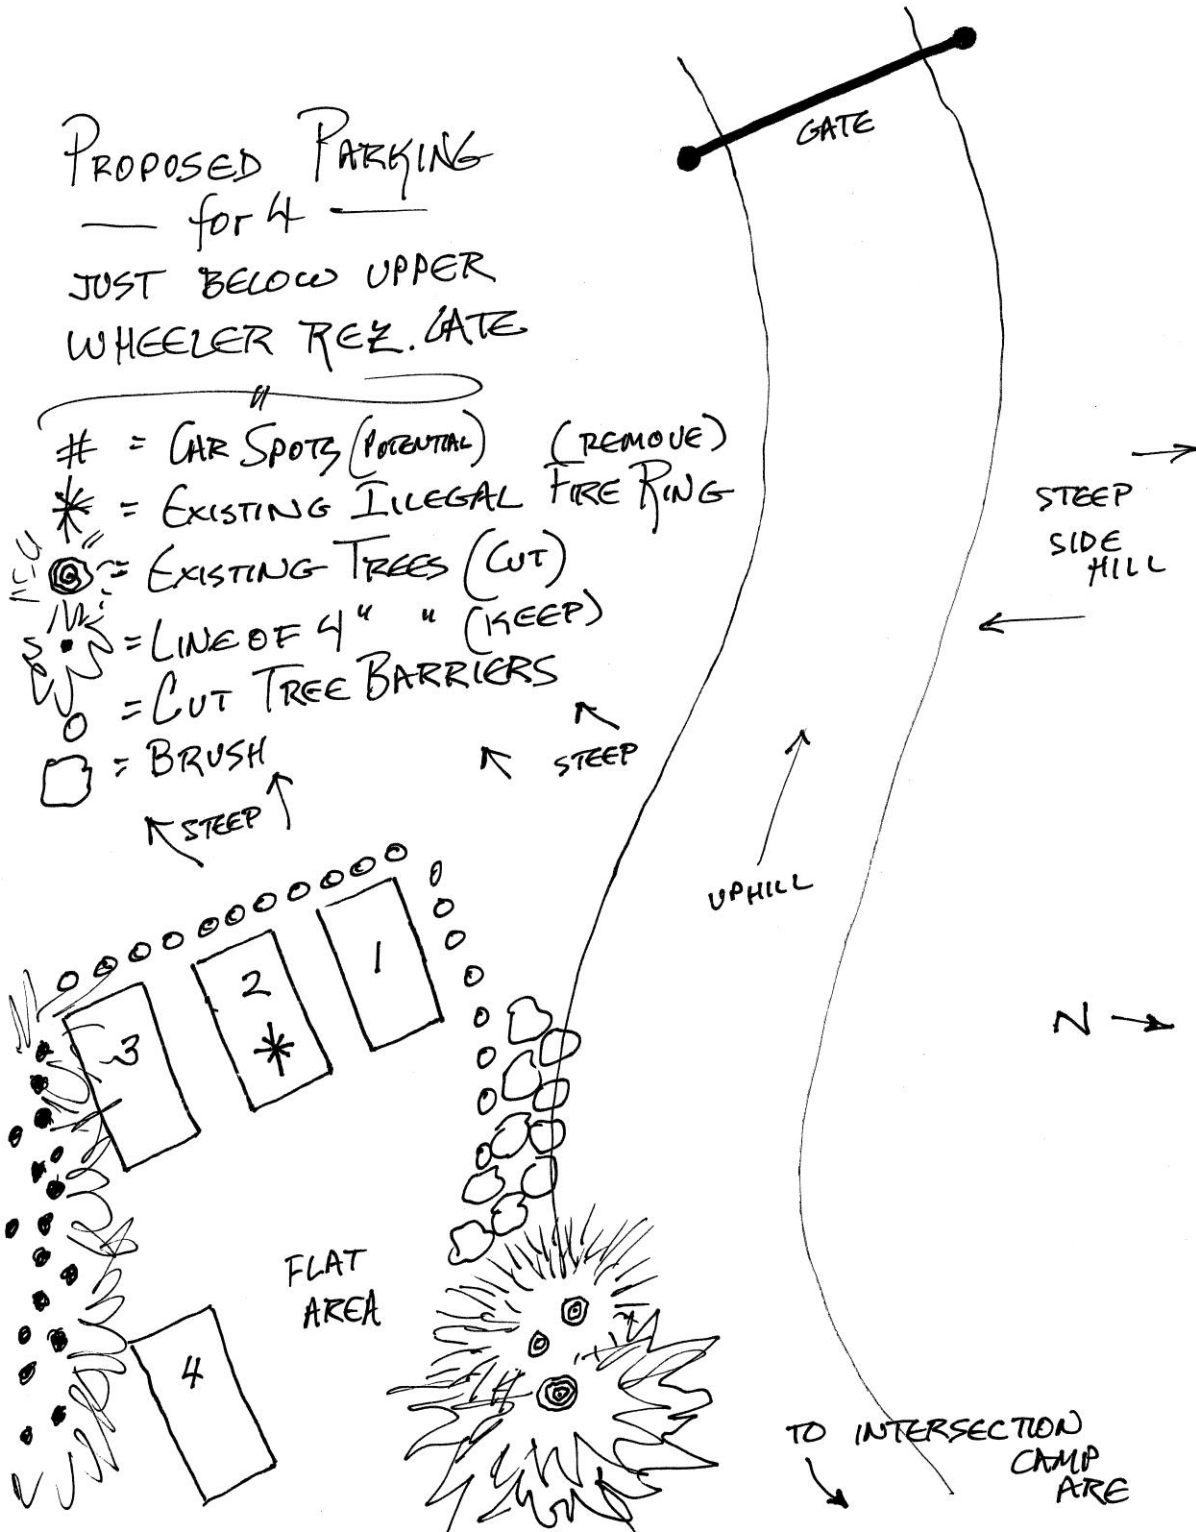 PROPOSED PARKING
— for 4 —
JUST BELOW UPPER
WHEELER REZ. GATE
"
# = CAR SPOTS (POTENTIAL) (REMOVE)
* = EXISTING ILLEGAL FIRE RING
= EXISTING TREES (CUT)
= LINE OF 4" " (KEEP)
= CUT TREE BARRIERS
= BRUSH
GATE
STEEP
SIDE
HILL
STEEP
STEEP
UPHILL
N →
1
2
*
3
4
FLAT
AREA
TO INTERSECTION
CAMP
ARE